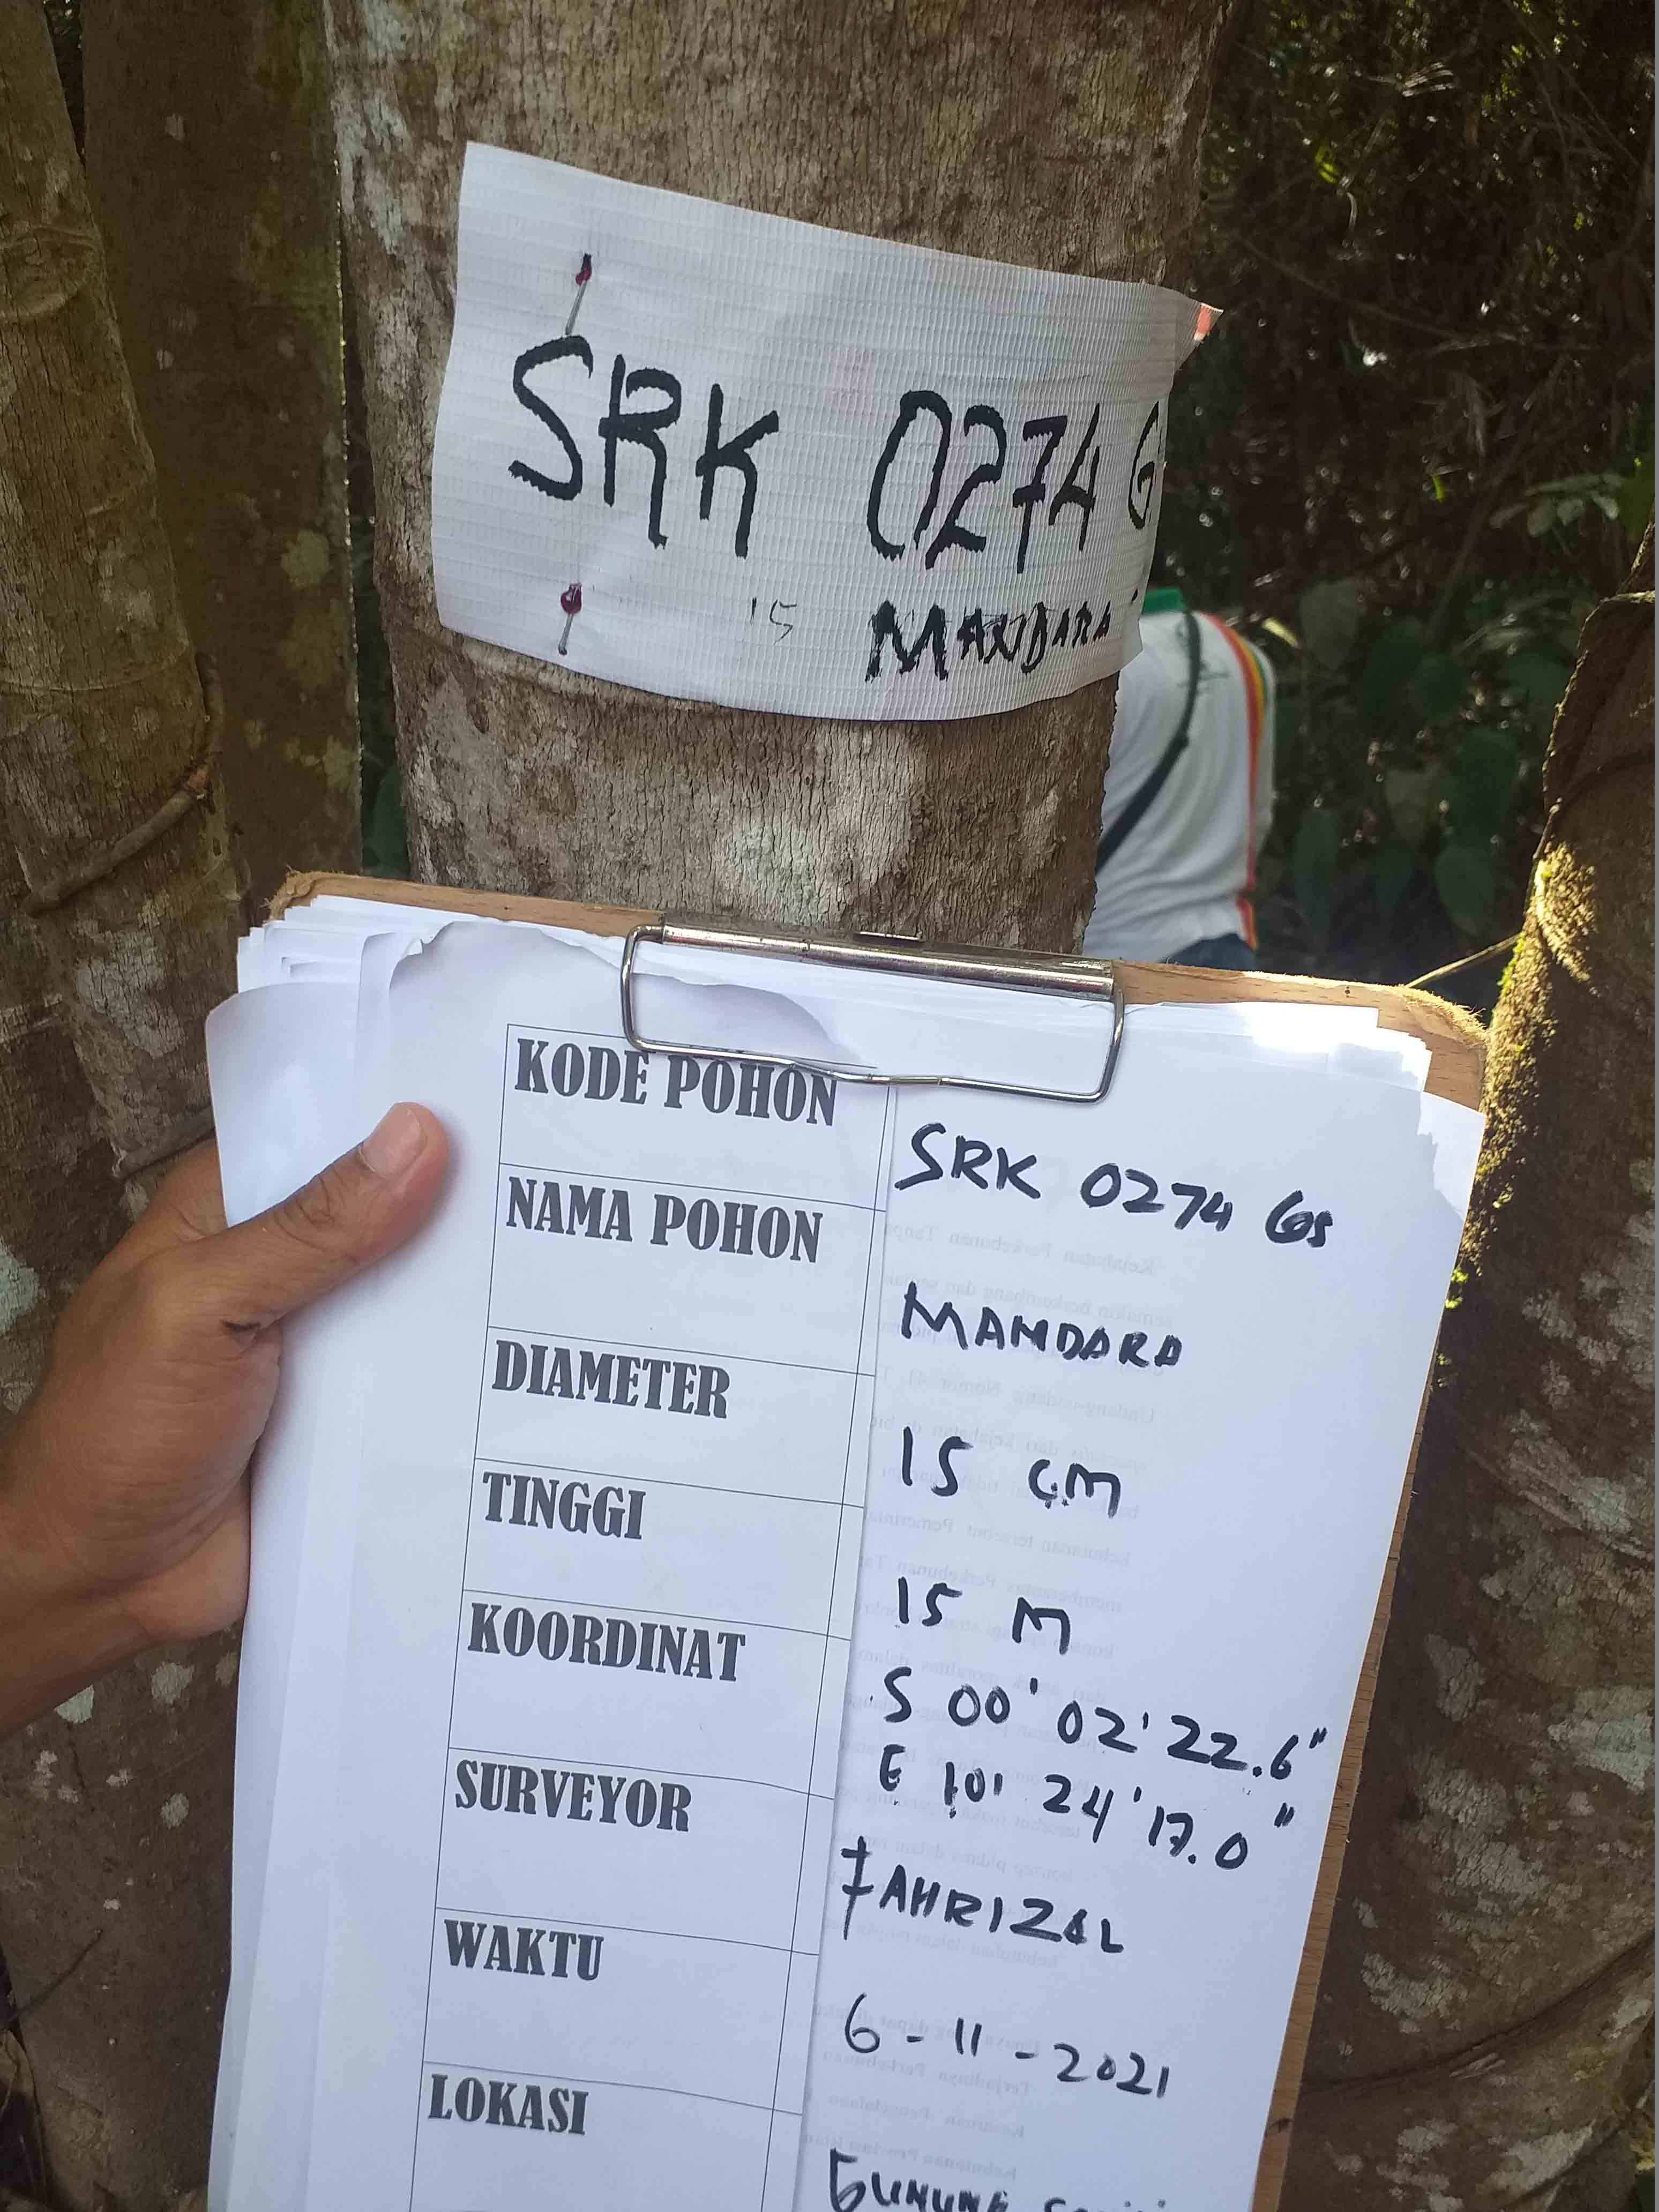 SRK 0274 G
15 MANDARA
KODE POHON
SRK 0274 GS
NAMA POHON
MANDARA
DIAMETER
15 cm
TINGGI
15 M
KOORDINAT
S 00' 02' 22.6"
E 101 24' 17.0"
SURVEYOR
FAHRIZAL
WAKTU
6-11-2021
LOKASI
GUNUNG